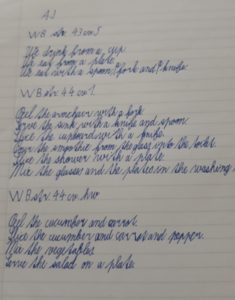 WB str. 43 cv. 5
We drink from a cup.
We eat from a plate.
We eat with a spoon, fork and knife.
WB str. 44 cv. 1
Peel the armchair with a fork.
Serve the sink with a knife and spoon.
Slice the cupboard with a knife.
Pour the smoothie from the glass into the toilet.
the shower with a plate.
Mix the glasses and the plates in the washing
WB str. 44 cv.
Peel the cucumber and carrot.
Slice the cucumber and carrot and pepper.
Mix the vegetables.
Serve the salad on a plate.